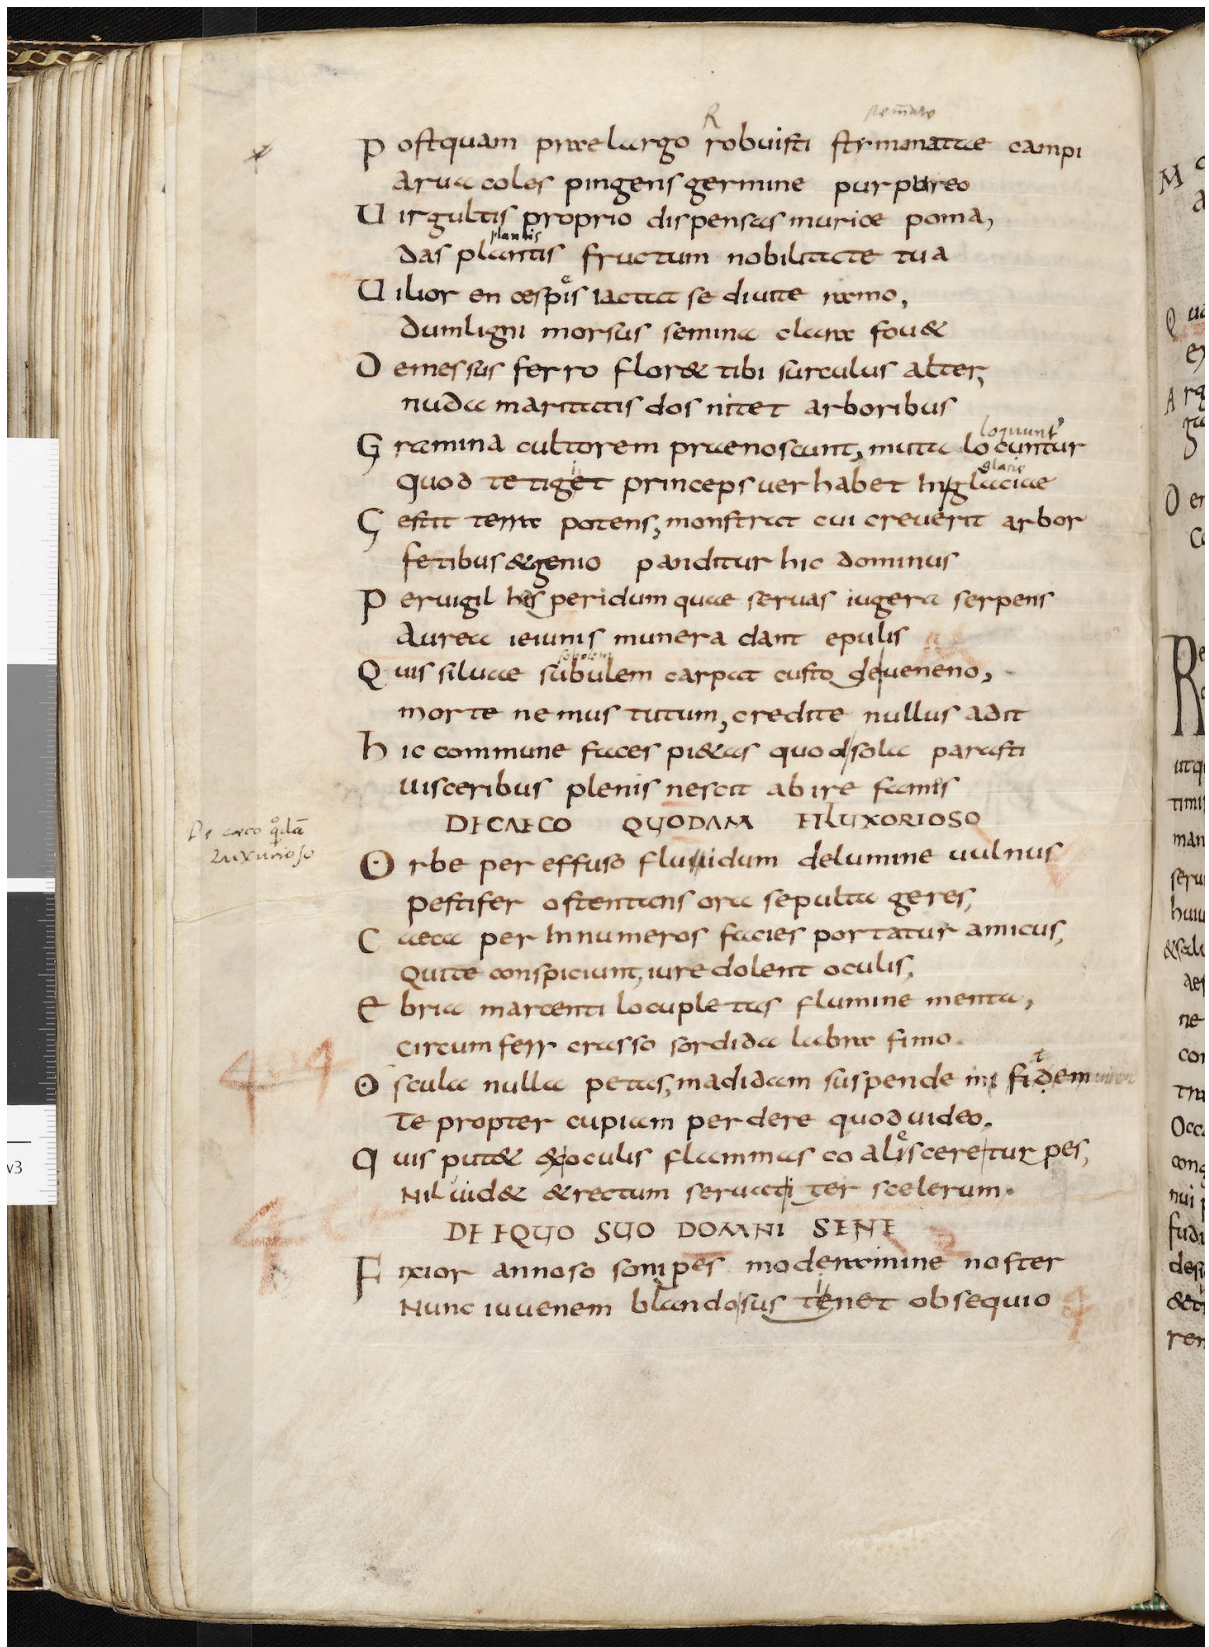 R
Postquam praelargo robuisti straminatae campi
arua coles pingens germine purpureo
Uirgultis proprio dispensas murice poma,
plantis
das plantis fructum nobilitate tua
Uilior en cespis iactat se diuite ramo,
dumligni morsus semina clara fou&
Demessus ferro flor& tibi surculus alter,
nuda maritatis dos nitet arboribus
loquunt
Gramina cultorem praenoscunt, muta locuntur
glacie
quod te tiget princeps uer habet Inglaciae
Gestit terra potens, monstrat cui creuerit arbor
fetibus &genio panditur hic dominus
Peruigil hesperidum quae seruas iugera serpens
Aurea ieiuniis munera dant epulis
sobolem
Quis siluae subulem carpat custo deueneno,
morte nemus tutum, credite nullus adit
hic commune faces pi&as quod sola parasti
uisceribus plenis nescit abire famis
DECAECO QUODAM FILUXORIOSO
De caeco quodā
luxurioso
Orbe per effuso fluuidum delumine uulnus
pestifer ostentans ora sepulta geres,
Caeca per Innumeros facies portatur amicus,
Quite conspiciunt, iure dolent oculis,
Ebria marcenti locupletas flumine menta,
circum ferr crasso sordida labra fimo.
Oscula nulla petas, madidam suspende mi fidem
Te propter cupiam perdere quod uideo.
Quis put& exoculis flammas coaliscere turpes,
Nil uid& &rectum seruat iter scelerum.
DE EQUO SUO DOMNI SENE
Fixior annoso sonipes moderamine noster
Nunc iuuenem blando sus tenet obsequio